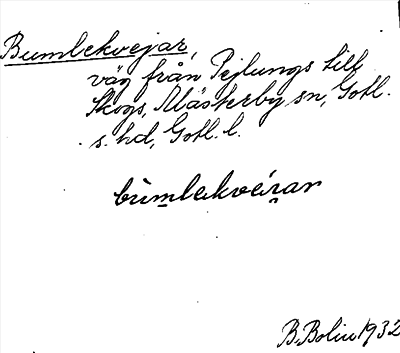 Bumlekvejar,
väg från Pejlungs till
Skogs, Mästerby sn, Gotl.
s. hd, Gotl. l.
bùmlekvéi̯ar
B. Bolin 1932